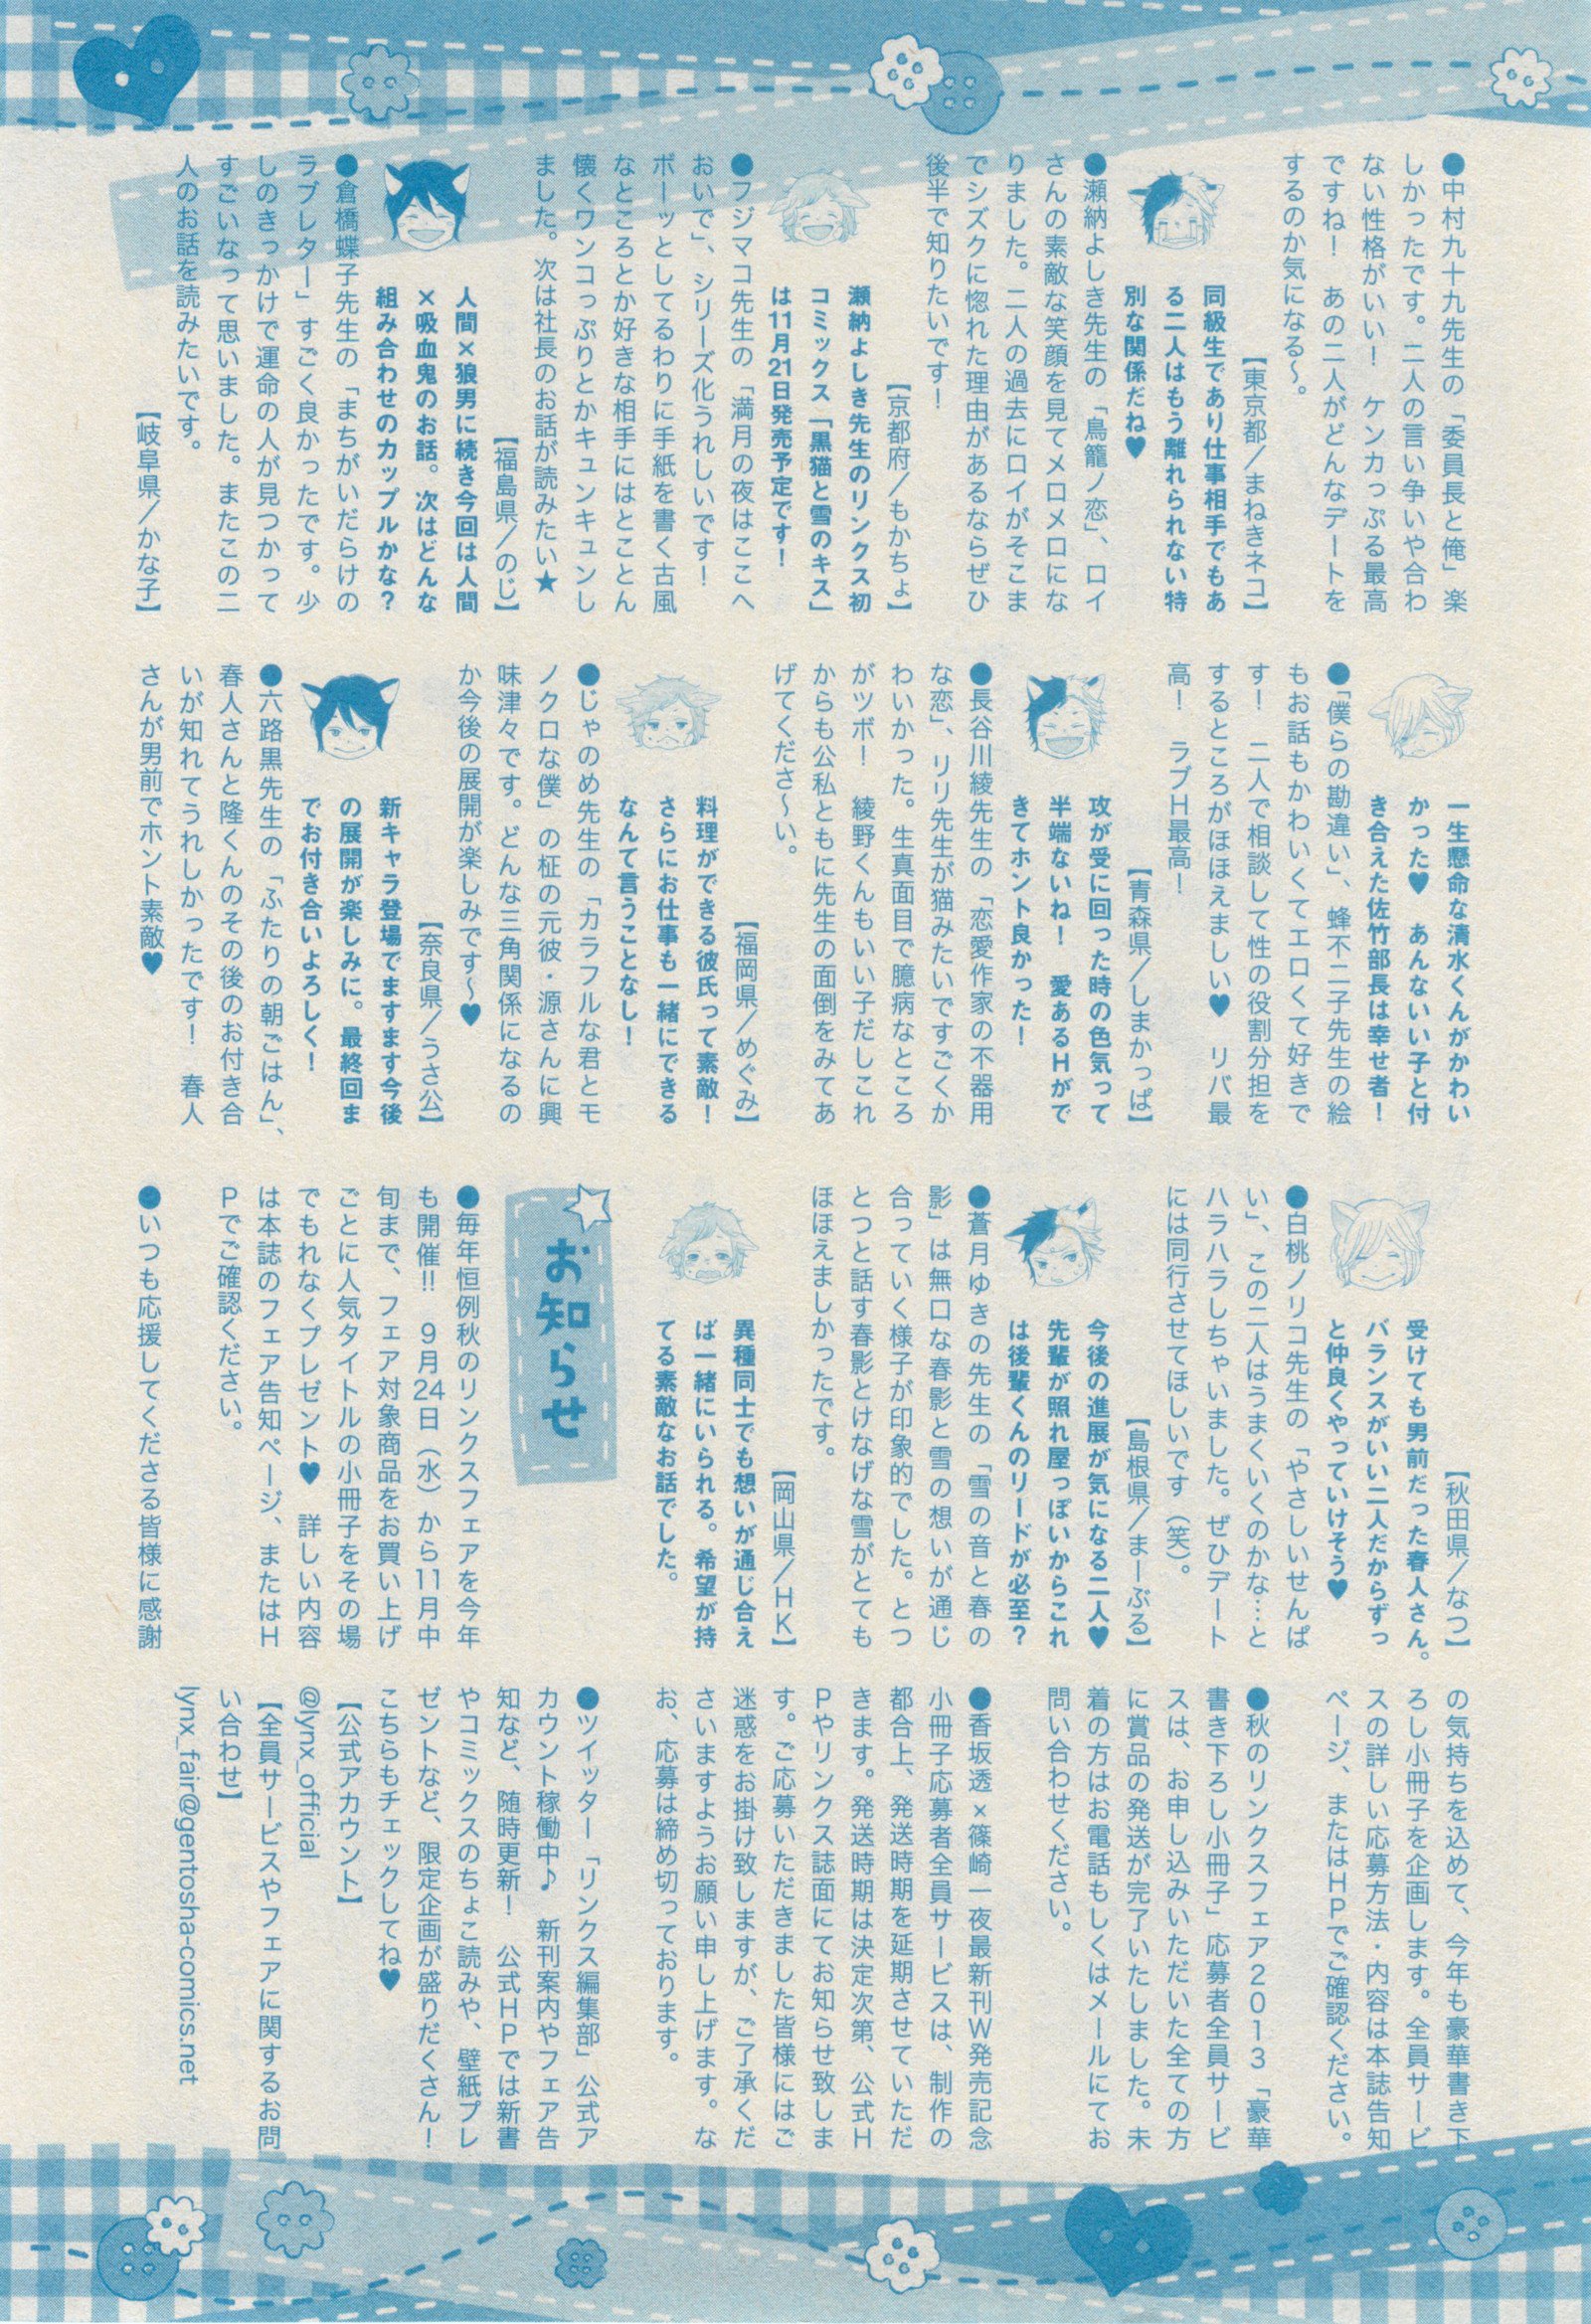 ●中村九十九先生の「委員長と俺」楽
しかったです。二人の言い争いや合わ
ない性格がいい！　ケンカっぷる最高
ですね！　あの二人がどんなデートを
するのか気になる〜。
【東京都／まねきネコ】
同級生であり仕事相手でもあ
る二人はもう離れられない特
別な関係だね♥
●瀬納よしき先生の「鳥籠ノ恋」、ロイ
さんの素敵な笑顔を見てメロメロにな
りました。二人の過去にロイがそこま
でシズクに惚れた理由があるならぜひ
後半で知りたいです！
【京都府／もかちょ】
瀬納よしき先生のリンクス初
コミックス「黒猫と雪のキス」
は11月21日発売予定です！
●フジマコ先生の「満月の夜はここへ
おいで」、シリーズ化うれしいです！
ボーッとしてるわりに手紙を書く古風
なところとか好きな相手にはとことん
懐くワンコっぷりとかキュンキュンし
ました。次は社長のお話が読みたい★
【福島県／のじ】
人間×狼男に続き今回は人間
×吸血鬼のお話。次はどんな
組み合わせのカップルかな？
●倉橋蝶子先生の「まちがいだらけの
ラブレター」すごく良かったです。少
しのきっかけで運命の人が見つかって
すごいなって思いました。またこの二
人のお話を読みたいです。
【岐阜県／かな子】
一生懸命な清水くんがかわい
かった♥　あんないい子と付
き合えた佐竹部長は幸せ者！
●「僕らの勘違い」、蜂不二子先生の絵
もお話もかわいくてエロくて好きで
す！　二人で相談して性の役割分担を
するところがほほえましい♥　リバ最
高！　ラブH最高！
【青森県／しまかっぱ】
攻が受に回った時の色気って
半端ないね！　愛あるHがで
きてホント良かった！
●長谷川綾先生の「恋愛作家の不器用
な恋」、リリ先生が猫みたいですごくか
わいかった。生真面目で臆病なところ
がツボ！　綾野くんもいい子だしこれ
からも公私ともに先生の面倒をみてあ
げてくださ〜い。
【福岡県／めぐみ】
料理ができる彼氏って素敵！
さらにお仕事も一緒にできる
なんて言うことなし！
●じゃのめ先生の「カラフルな君とモ
ノクロな僕」の柾の元彼・源さんに興
味津々です。どんな三角関係になるの
か今後の展開が楽しみです〜♥
【奈良県／うさ公】
新キャラ登場でますます今後
の展開が楽しみに。最終回ま
でお付き合いよろしく！
●六路黒先生の「ふたりの朝ごはん」、
春人さんと隆くんのその後のお付き合
いが知れてうれしかったです！　春人
さんが男前でホント素敵♥
【秋田県／なつ】
受けても男前だった春人さん。
バランスがいい二人だからずっ
と仲良くやっていけそう♥
●白桃ノリコ先生の「やさしいせんぱ
い」、この二人はうまくいくのかな…と
ハラハラしちゃいました。ぜひデート
には同行させてほしいです（笑）。
【島根県／まーぶる】
今後の進展が気になる二人♥
先輩が照れ屋っぽいからこれ
は後輩くんのリードが必至？
●蒼月ゆきの先生の「雪の音と春の
影」は無口な春影と雪の想いが通じ
合っていく様子が印象的でした。とつ
とつと話す春影とけなげな雪がとても
ほほえましかったです。
【岡山県／HK】
異種同士でも想いが通じ合え
ば一緒にいられる。希望が持
てる素敵なお話でした。
お知らせ
●毎年恒例秋のリンクスフェアを今年
も開催!!　９月24日（水）から11月中
旬まで、フェア対象商品をお買い上げ
ごとに人気タイトルの小冊子をその場
でもれなくプレゼント♥　詳しい内容
は本誌のフェア告知ページ、またはH
Pでご確認ください。
●いつも応援してくださる皆様に感謝
の気持ちを込めて、今年も豪華書き下
ろし小冊子を企画します。全員サービ
スの詳しい応募方法・内容は本誌告知
ページ、またはHPでご確認ください。
●秋のリンクスフェア２０１３「豪華
書き下ろし小冊子」応募者全員サービ
スは、お申し込みいただいた全ての方
に賞品の発送が完了いたしました。未
着の方はお電話もしくはメールにてお
問い合わせください。
●香坂透×篠崎一夜最新刊W発売記念
小冊子応募者全員サービスは、制作の
都合上、発送時期を延期させていただ
きます。発送時期は決定次第、公式H
Pやリンクス誌面にてお知らせ致しま
す。ご応募いただきました皆様にはご
迷惑をお掛け致しますが、ご了承くだ
さいますようお願い申し上げます。な
お、応募は締め切っております。
●ツイッター「リンクス編集部」公式ア
カウント稼働中♪　新刊案内やフェア告
知など、随時更新！　公式HPでは新書
やコミックスのちょこ読みや、壁紙プレ
ゼントなど、限定企画が盛りだくさん！
こちらもチェックしてね♥
【公式アカウント】
@lynx_official
【全員サービスやフェアに関するお問
い合わせ】
lynx_fair@gentosha-comics.net